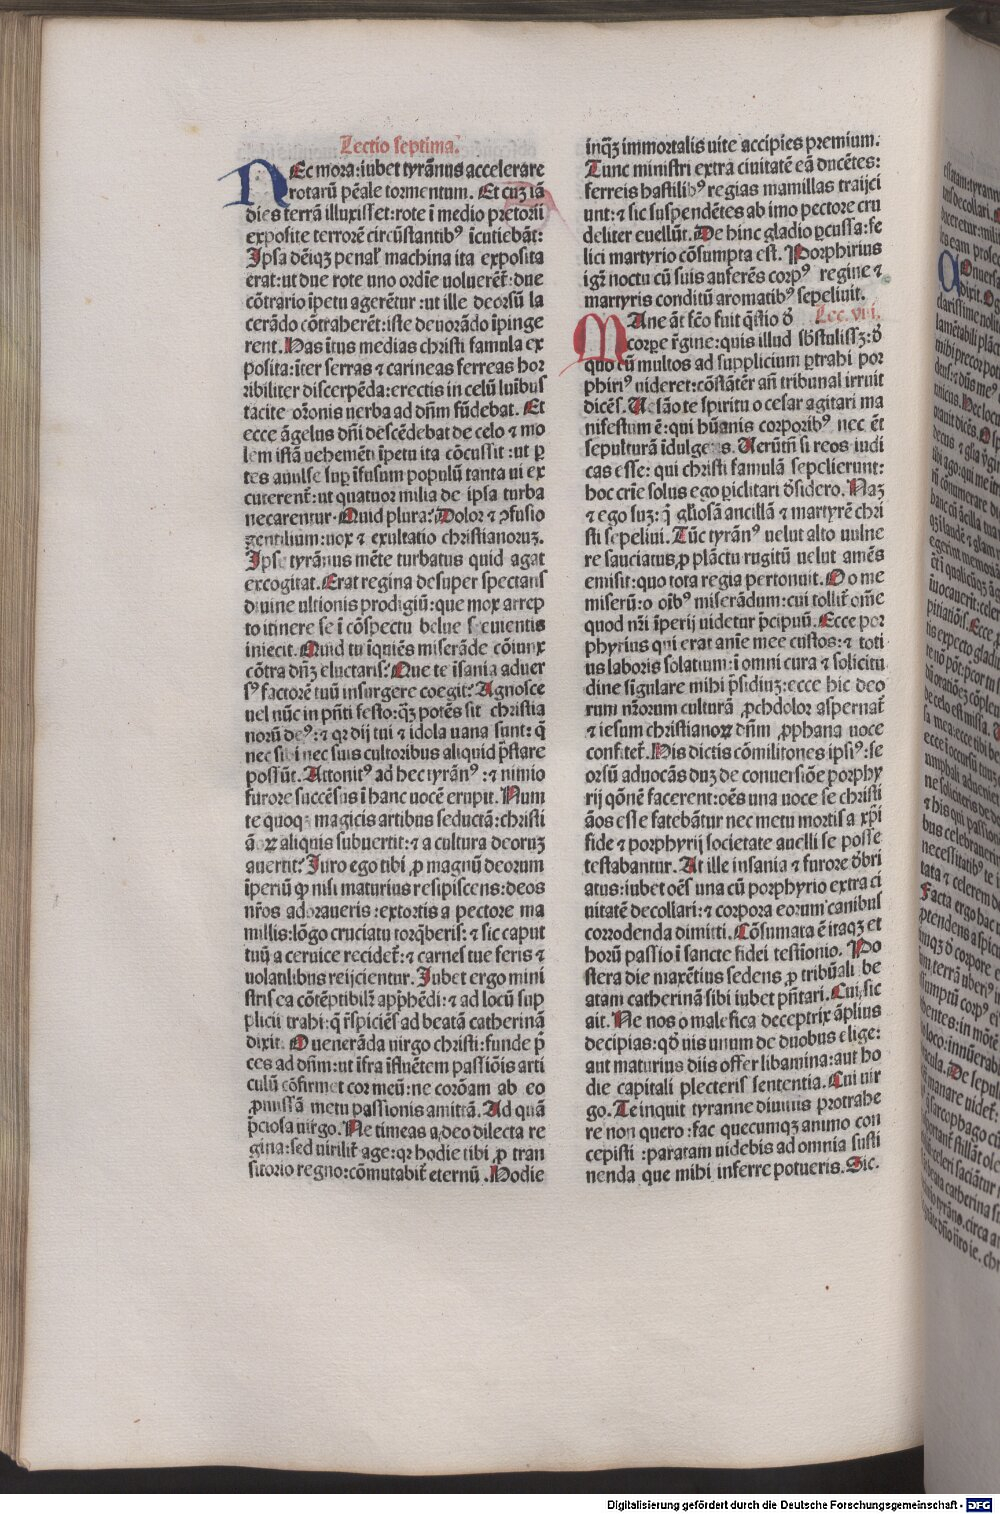 Lectio septima.
NEc mora:iubet tyrānus accelerare
rotarū pēale tormentum. Et cuꝫ iā
dies terrā illuxisset:rote ī medio pretorii
exposite terrorē circūstantibꝰ īcutiebāt:
Ipsa dēiqꝫ penal' machina ita exposita
erat:ut due rote uno ordīe uoluerēt̄:due
cōtrario īpetu agerētur:ut ille deorsū la
cerādo cōtraherēt:iste deuorādo īpinge
rent.Has ītus medias christi famula ex
posita:īter serras ⁊ carineas ferreas hor
ribiliter discerpēda:erectis in celū luībus
tacite or̄onis uerba ad dn̄m fūdebat. Et
ecce āgelus dn̄i descēdebat de celo ⁊ mo
lem istā uehemēti īpetu ita cōcussit:ut p̄
tes auulse sup̄ īfusum populū tanta ui ex
cuterent̄:ut quatuor milia de ipsa turba
necarentur.Quid plura?Dolor ⁊ ꝓfusio
gentilium:uox ⁊ exultatio christianoruꝫ.
Ipse tyrānus mēte turbatus quid agat
excogitat.Erat regina desuper spectans
diuine ultionis prodigiū:que mox arrep
to itinere se ī cōspectu belue seuientis
iniecit.Quid tu īquiēs miserāde cōiunx
cōtra dn̄ꝫ eluctaris?Que te īsania aduer
sꝰ factorē tuū insurgere coegit?Agnosce
uel nūc in pn̄ti festo:qꝫ potēs sit christia
norū deꝰ:⁊ qꝛ dij tui ⁊ idola uana sunt:q̄
nec sibi nec suis cultoribus aliquid p̄stare
possūt.Attonitꝰ ad hec tyrānꝰ:⁊ nimio
furore succēsus ī hanc uocē erupit.Num
te quoqꝫ magicis artibus seductā:christi
āoꝝ aliquis subuertit:⁊ a cultura deoruꝫ
auertit?Juro ego tibi ꝑ magnū deorum
īperiū ꝙ nisi maturius resipiscens:deos
nr̄os adoraueris:extortis a pectore ma
millis:lōgo cruciatu torq̄beris:⁊ sic caput
tuū a ceruice recidet̄:⁊ carnes tue feris ⁊
uolatilibus reijcientur.Jubet ergo mini
stris ea cōtēptibilꝛ app̄hēdi:⁊ ad locū sup
plicii trahi:q̄ r̄spiciēs ad beatā catherinā
dixit.O uenerāda uirgo christi:funde p̄
ces ad dn̄m:ut īfra īstuētem passiōis arti
culū cōfirmet cor meū:ne corōam ab eo
ꝓmissā metu passionis amittā.Ad quā
p̄ciosa uirgo.Ne timeas adeo dilecta re
gina:sed uirilit̄ age:qꝛ hodie tibi ꝓ tran
sitorio regno:cōmutabit̄ eternū.Hodie
inqꝫ immortalis uite accipies premium.
Tunc ministri extra ciuitatē eā ducētes:
ferreis hastilibꝰ regias mamillas traijci
unt:⁊ sic suspendētes ab imo pectore cru
deliter euellūt.De hinc gladio ꝑcussa:fe
lici martyrio cōsumpta est.Porphirius
igr̄ noctu cū suis auferēs corpꝰ regine ⁊
martyris conditū aromatibꝰ sepeliuit.
MAne āt fc̄o fuit q̄stio d̄ Lec.viii.
corpe r̄gine:quis illud sb̄stulissꝫ:d̄
quo cū multos ad supplicium ꝑtrahi por
phiriꝰ uideret:cōstātēr an̄ tribunal irruit
dicēs.Uesāo te spiritu o cesar agitari ma
nifestum ē:qui hūanis corporibꝰ nec ēt
sepulturā īdulgeas.Uerūtn̄ si reos iudi
cas esse:qui christi famulā sepelierunt:
hoc crīe solus ego ꝑiclitari d̄sidero.Naꝫ
⁊ ego suꝫ:q̄ gl̄iosā ancillā ⁊ martyrē chri
sti sepeliui.Tūc tyrānꝰ uelut alto uulne
re sauciatus,ꝓ plāctu rugitū uelut amēs
emisit:quo tota regia pertonuit.O o me
miserū:o oībꝰ miserādum:cui tollit̄ om̄e
quod nr̄i īperij uidetur p̄cipuū.Ecce por
phyrius qui erat anīe mee custos:⁊ toti
us laboris solatium:ī omni cura ⁊ solicitu
dine sīgulare mihi p̄sidiuꝫ:ecce hic deo
rum nr̄orum culturā ꝓchdolor aspernat̄
⁊ iesum christianoꝝ dn̄m ꝓphana uoce
confitet̄.His dictis cōmilitones ipsiꝰ:se
orsū aduocās duꝫ de conuersiōe porphy
rij qōnē facerent:oēs una uoce se christi
āos esse fatebātur nec metu mortis a xp̄i
fide ⁊ porphyrij societate auelli se posse
testabantur.At ille insania ⁊ furore d̄bri
atus:iubet oēs una cū porphyrio extra ci
uitatē decollari:⁊ corpora eorum canibus
corrodenda dimitti.Cōsumata ē itaqꝫ et
horū passio ī sancte fidei testīonio.Po
stera die maxētius sedens ꝓ tribūali be
atam catherinā sibi iubet pn̄tari.Cui sic
ait.Ne nos o malefica deceptrix āplius
decipias:qd̄ uis unum de duobus elige:
aut maturius diis offer libamina:aut ho
die capitali plecteris sententia.Cui uir
go.Te inquit tyranne diutius protrahe
re non quero:fac quecumqꝫ animo con
cepisti:paratam uidebis ad omnia susti
nenda que mihi inferre potueris.Sic.
Digitalisierung gefördert durch die Deutsche Forschungsgemeinschaft - DFG